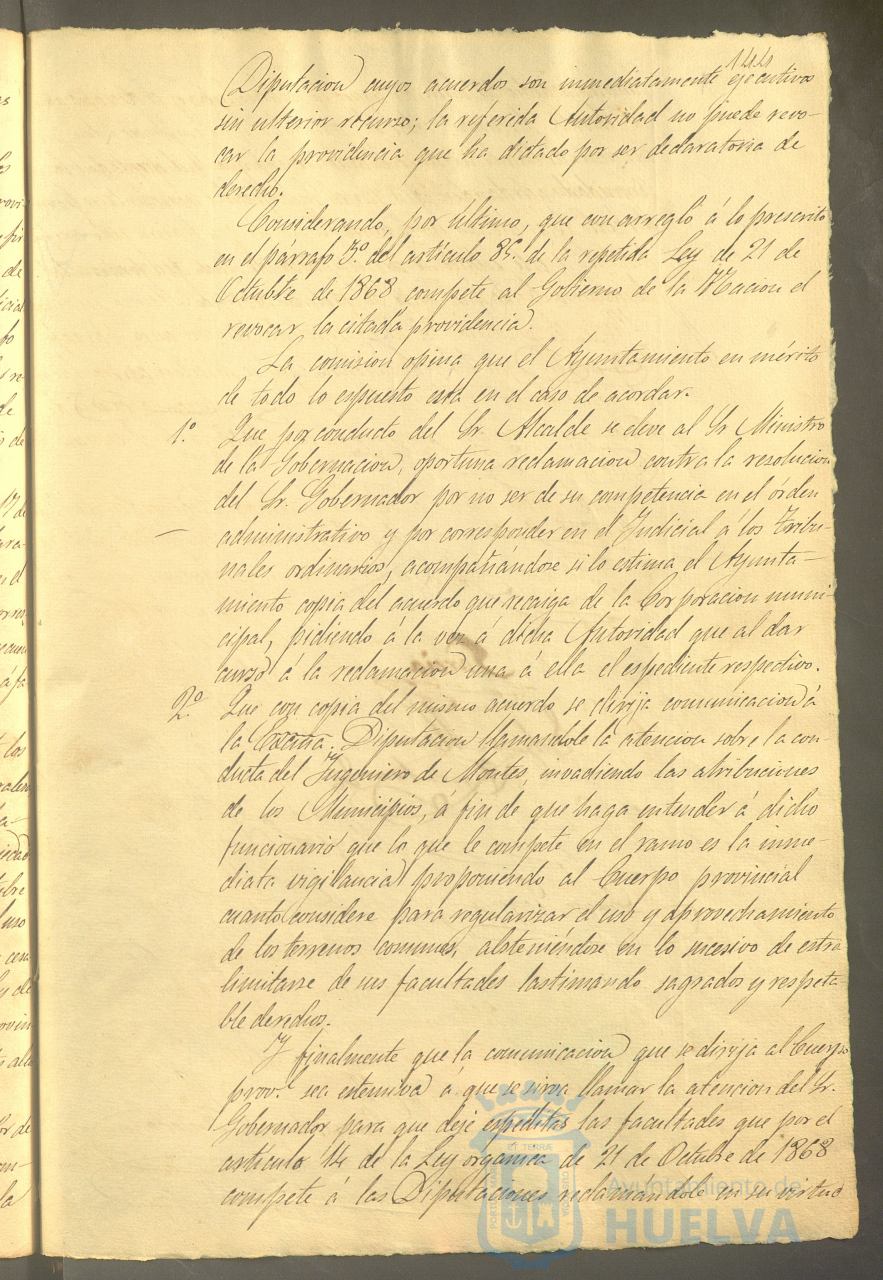 144
Diputacion cuyos acuerdos son inmediatamente ejecutivos
sin ulterior recurso; la referida Autoridad no puede revo-
car la providencia que ha dictado por ser declaratoria de
derecho.
Considerando, por último, que con arreglo á lo prescrito
en el párrafo 3º del artículo 85. de la repetida Ley de 21 de
Octubre de 1868 compete al Gobierno de la Nacion el
revocar la citada providencia.
La comision opina que el Ayuntamiento en mérito
de todo lo espuesto esta en el caso de acordar.
1º Que por conducto del Sr. Alcalde se eleve al Sr Ministro
de la Gobernacion, oportuna reclamacion contra la resolucion
del Sr. Gobernador por no ser de su competencia en el órden
administrativo y por corresponder en el Judicial á los Tribu-
nales ordinarios, acompañándose si lo estima el Ayunta-
miento copia del acuerdo que recaiga de la Corporacion muni-
cipal, pidiendo á la vez á dicha Autoridad que al dar
curso á la reclamacion una á ella el espediente respectivo.
2º Que con copia del mismo acuerdo se dirija comunicacion á
la Excma. Diputacion llamandole la atencion sobre la con-
ducta del Ingeniero de Montes, invadiendo las atribuciones
de los Municipios, á fin de que haga entender á dicho
funcionario que lo que le compete en el ramo es la inme-
diata vigilancia proponiendo al Cuerpo provincial
cuanto considere para regularizar el uso y aprovechamiento
de los terrenos comunes, absteniéndose en lo sucesivo de estra
limitarse de sus facultades lastimando sagrados y respeta-
ble derechos.
Y finalmente que la comunicacion que se dirija al Cuerpo
prov.l sea estensiva á que se sirva llamar la atencion del Sr.
Gobernador para que deje espeditas las facultades que por el
artículo 14 de la Ley organica de 21 de Octubre de 1868
compete á las Diputaciones reclamándole en su virtud
Ayuntamiento de
HUELVA